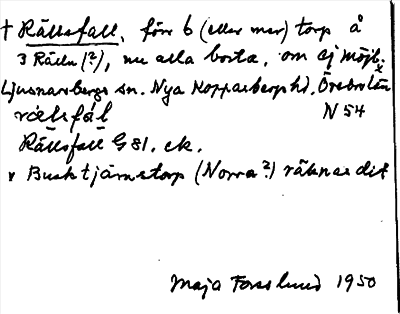 † Rällsfall, förr 6 (eller mer) torp å
3 Rälln (?), nu alla borta, om ej möjl. x
Ljusnarsbergs sn. Nya Kopparbergs hd. Örebro län
rälsfál N 54
Rällsfall G 81. ek.
x Busktjärnstorp (Norra?) räknas dit
Maja Forsslund 1950